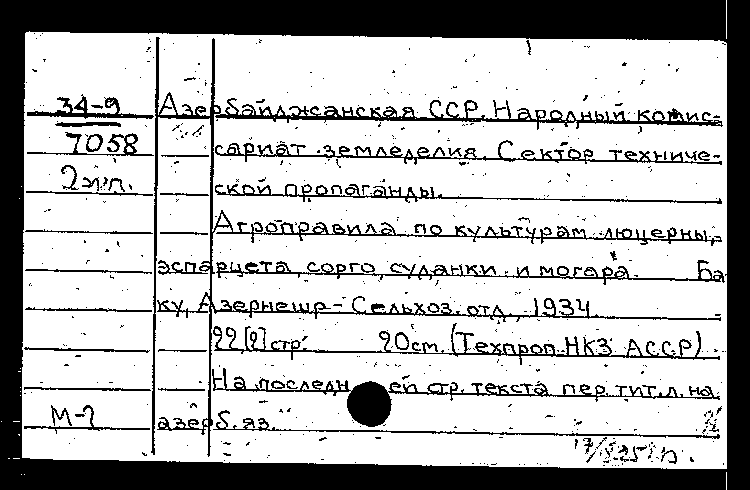 34-9 Азербайджанская ССР. Народный комис-
7058 сариат земледелия. Сектор техниче-
2 экп. ской пропаганды.
Агроправила по культурам люцерны,
эспарцета, сорго, суданки и могара. Ба-
ку, Азернешр - Сельхоз. отд., 1934.
22,[2] стр. 20 см. (Техпроп НКЗ АССР)
На последней стр. текста пер. тит. л. на
М-2 азерб. яз.